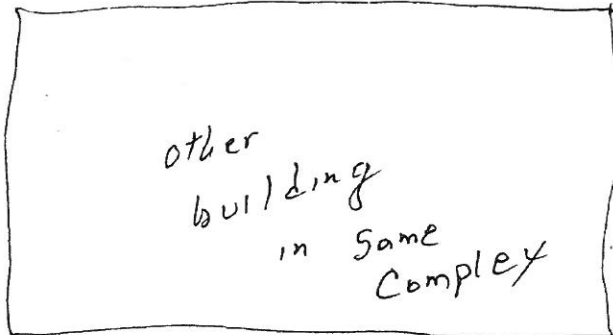 other
building
in same
complex